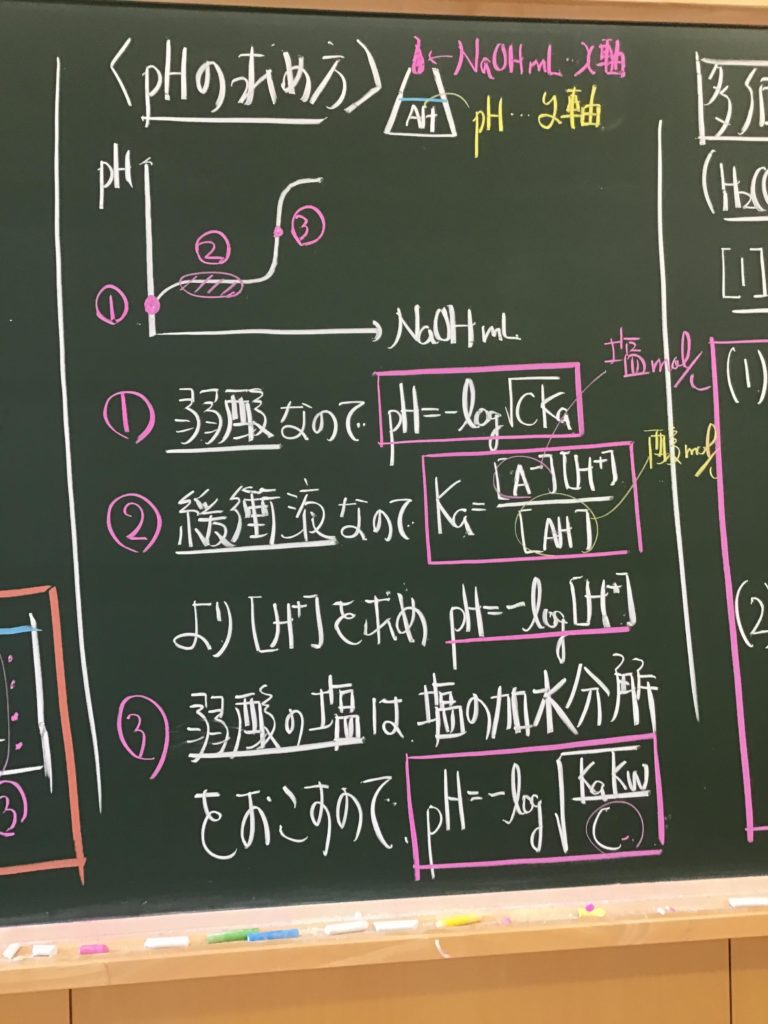 〈pHの求め方〉
←NaOHmL…x軸
AH
pH…y軸
pH
①
②
③
NaOHmL
① 弱酸なので pH=-log√CKa
塩mol/L
② 緩衝液なので Ka=[A⁻][H⁺]/[AH]
酸mol/L
より[H⁺]を求め pH=-log[H⁺]
③ 弱酸の塩は塩の加水分解
をおこすので pH=-log√KaKw/C
③
[1]
(1)
(2)